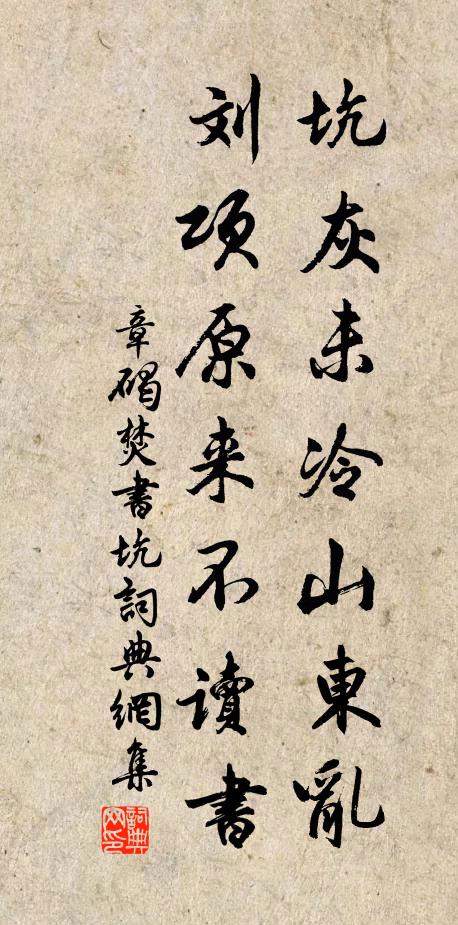 坑灰未冷山東亂
刘项原来不讀書
章碣焚書坑詞典網集
詞典網印